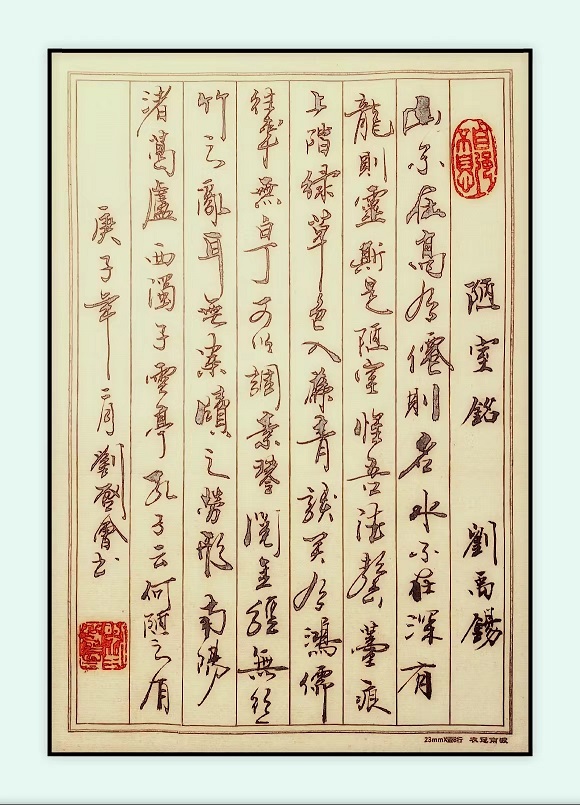 陋室銘 劉禹錫
山不在高有僊則名水不在深有
龍則靈斯是陋室惟吾德馨薹痕
上階綠草色入簾青談笑有鴻儒
往來無白丁可以調素琴閱金經無絲
竹之亂耳無案牘之勞形南陽
諸葛廬西濁子雲亭孔子云何陋之有
庚子年二月劉啟會書
自強不息
衣冠南渡